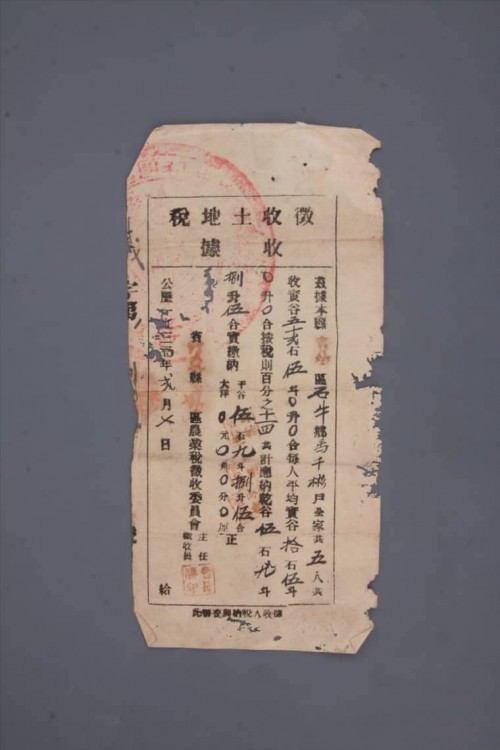 徵收土地稅
收據
茲據本縣 區石牛鄉馬千 戶全家共五人共
收實谷五十貳石伍斗0升0合每人平均實谷拾石伍斗
0升0合按稅則百分之十四 計應納乾谷伍石九斗
捌升伍合實繳納 干谷伍石九斗捌升伍合 大洋0元0角0分0厘 正
省 縣 區農業稅徵收委員會 主任 徵收員
公歷一九三 年貳月 日 給
據收人稅納與發聯此